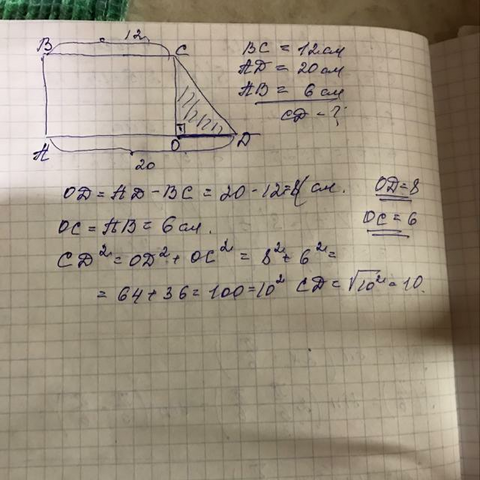 B 12 C
BC = 12 см
AD = 20 см
AB = 6 см
CD - ?
A O D
20
OD = AD - BC = 20 - 12 = 8 см. OD = 8
OC = AB = 6 см. OC = 6
CD² = OD² + OC² = 8² + 6² =
= 64 + 36 = 100 = 10² CD = √10² = 10.